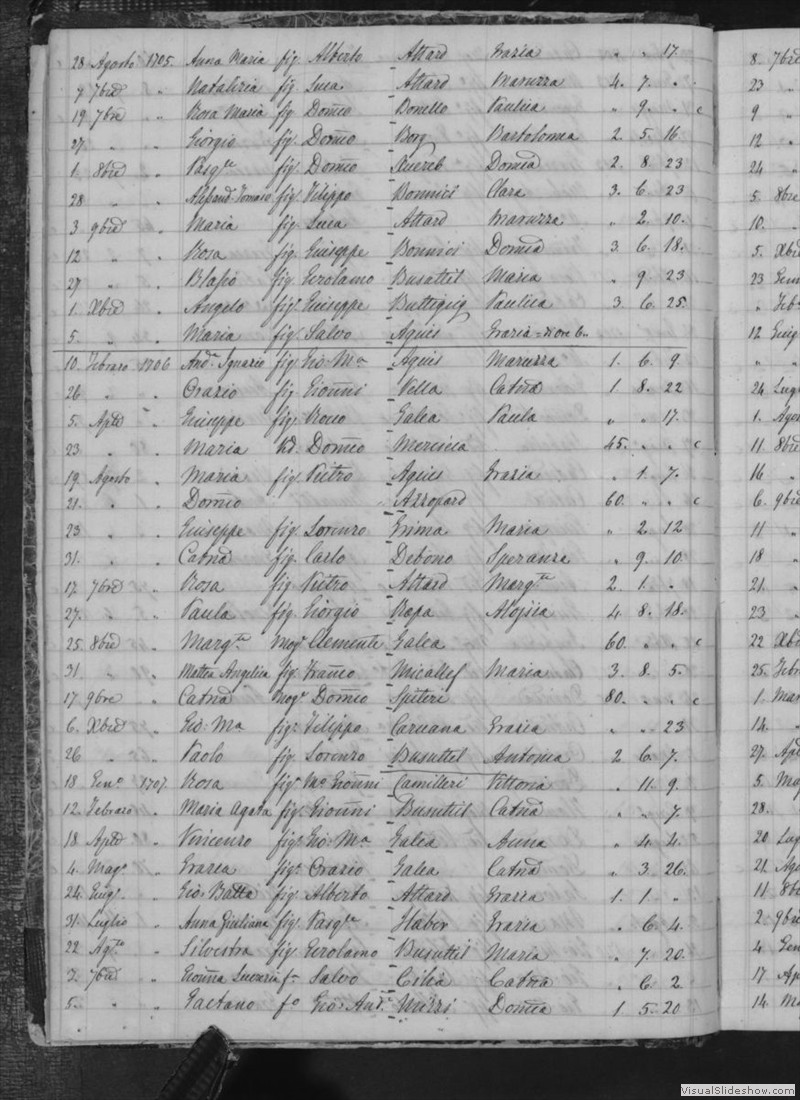 28 Agosto 1705. Anna Maria fig. Alberto Attard Grazia " " 17.
7 7bre " Natalizia fig. Luca Attard Maruzza 4. 7. "
19 7bre " Rosa Maria fig Domco Bonello Paulica " 9. " c
27. " " Giorgio fig. Domco Borg Bartolomea 2. 5. 16
1. 8bre " Pasqle fig. Domco Xuereb Domca 2. 8. 23
28 " Tomaso fig. Filippo Bonnici Clara 3. 6. 23
3 9bre " Maria fig. Luca Attard Maruzza " 2. 10.
12 " " Rosa fig. Giuseppe Bonnici Domca 3. 6. 18.
27 " " Blasio fig. Gerolamo Busuttil Maria " 9. 23
1. Xbre " Angelo fig. Giuseppe Buttigieg Paulica 3. 6. 25.
5. " " Maria fig. Salvo Agius Grazia - di ore 6
10. Febraro 1706 Anda Ignazio fig. Gio: Ma Agius Maruzza 1. 6. 9.
26 " " Orazio fig. Gioanni Vella Catna 1. 8. 22
5. Aple " Giuseppe fig. Rocco Galea Paula " " 17.
23 " " Maria Vd. Domco Mercieca 45. " " c
19. Agosto " Maria fig. Pietro Agius Grazia " 1. 7.
21. " " Domco Azzopard 60. " " c
23 " " Giuseppe fig. Lorenzo Grima Maria " 2. 12
31. " " Catna fig. Carlo Debono Speranza " 9. 10
17. 7bre " Rosa fig. Pietro Attard Margta 2. 1. "
27. " " Paula fig. Giorgio Rapa Aloisia 4. 8. 18.
25. 8bre " Margta mog. Clemente Galea 60. " " c
31. " " Mattea Angelica fig. Franco Micallef Maria 3. 8. 5.
17 9bre " Catna mogr Domco Spiteri 80. " " c
6. Xbre " Gio: Ma fig. Filippo Caruana Grazia " " 23
26 " " Paolo fig. Lorenzo Busuttil Antonia 2 6. 7.
18 Geno 1707. Rosa fig. Mo Gioanni Camilleri Vittoria " 11. 9.
12. Febraro " Maria Agata fig. Gioanni Busuttil Catna " " 7.
18 Aple " Vincenzo fig. Gio: Ma Galea Anna " 4. 4.
4. Mago " Grazia fig. Orazio Galea Catna " 3. 26.
24. Giugo " Gio: Batta fig. Alberto Attard Grazia 1. 1. "
31. Luglio " Anna Giuliana fig. Pasqle Haber Grazia " 6. 4.
22 Agto " Silvestra fig. Gerolamo Busuttil Maria " 7. 20.
2. 7bre " Gioanna fa Salvo Cilia Catna " 6. 2
5. " " Gaetano fo Gio: Anto Muzzi Domca 1. 5. 20
8. 7bre
23 "
9 "
12 "
24 "
5. 8bre
10. "
5. Xbre
23 Gen
" Feb
12 Giug
" "
24 Lug
1. Ago
11 8bre
16 "
6. 9bre
11 "
18 "
21. "
23 "
22 Xbre
25. Feb
1. Mar
14. "
27. Apl
5. Mag
28. "
20 Lug
21. Ago
11 8bre
2. 9bre
4 Gen
17 Ap
14. Ma
VisualSlideshow.com